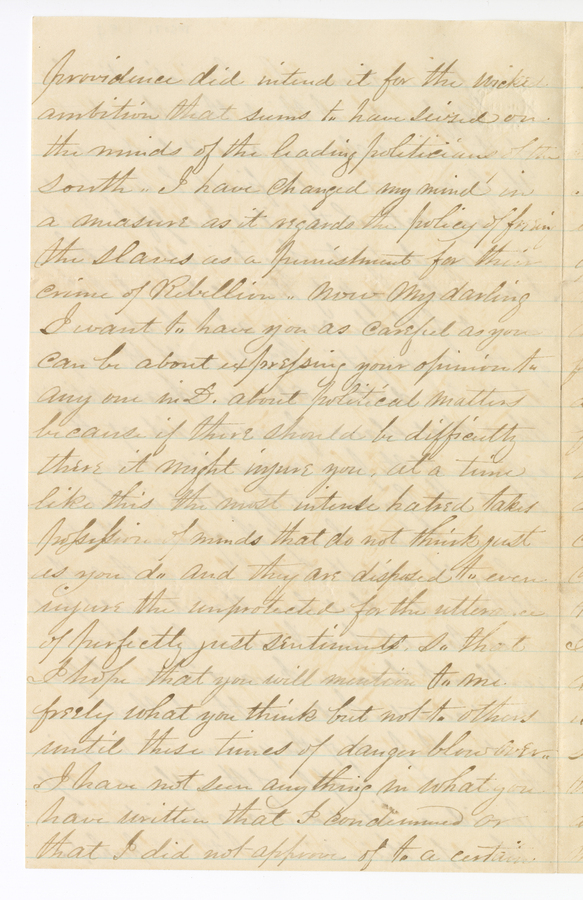 providence did intend it for the wicked
ambition that seems to have seized on
the minds of the leading politicians of the
South.. I have changed my mind in
a measure as it regards the policy of freein
the slaves as a punishment for their
crime of Rebellion.. now My darling
I want to have you as careful as you
can be about expressing your opinion to
any one in D. about political matters
because if there should be difficulty
there it might injure you, at a time
like this the most intense hatred takes
possession of minds that do not think just
as you do and they are disposed to even
injure the unprotected for the utterance
of perfectly just sentiments. So that
I hope that you will mention to me
freely what you think but not to others
until these times of danger blow over..
I have not seen anything in what you
have written that I condemned or
that I did not approve of to a certain